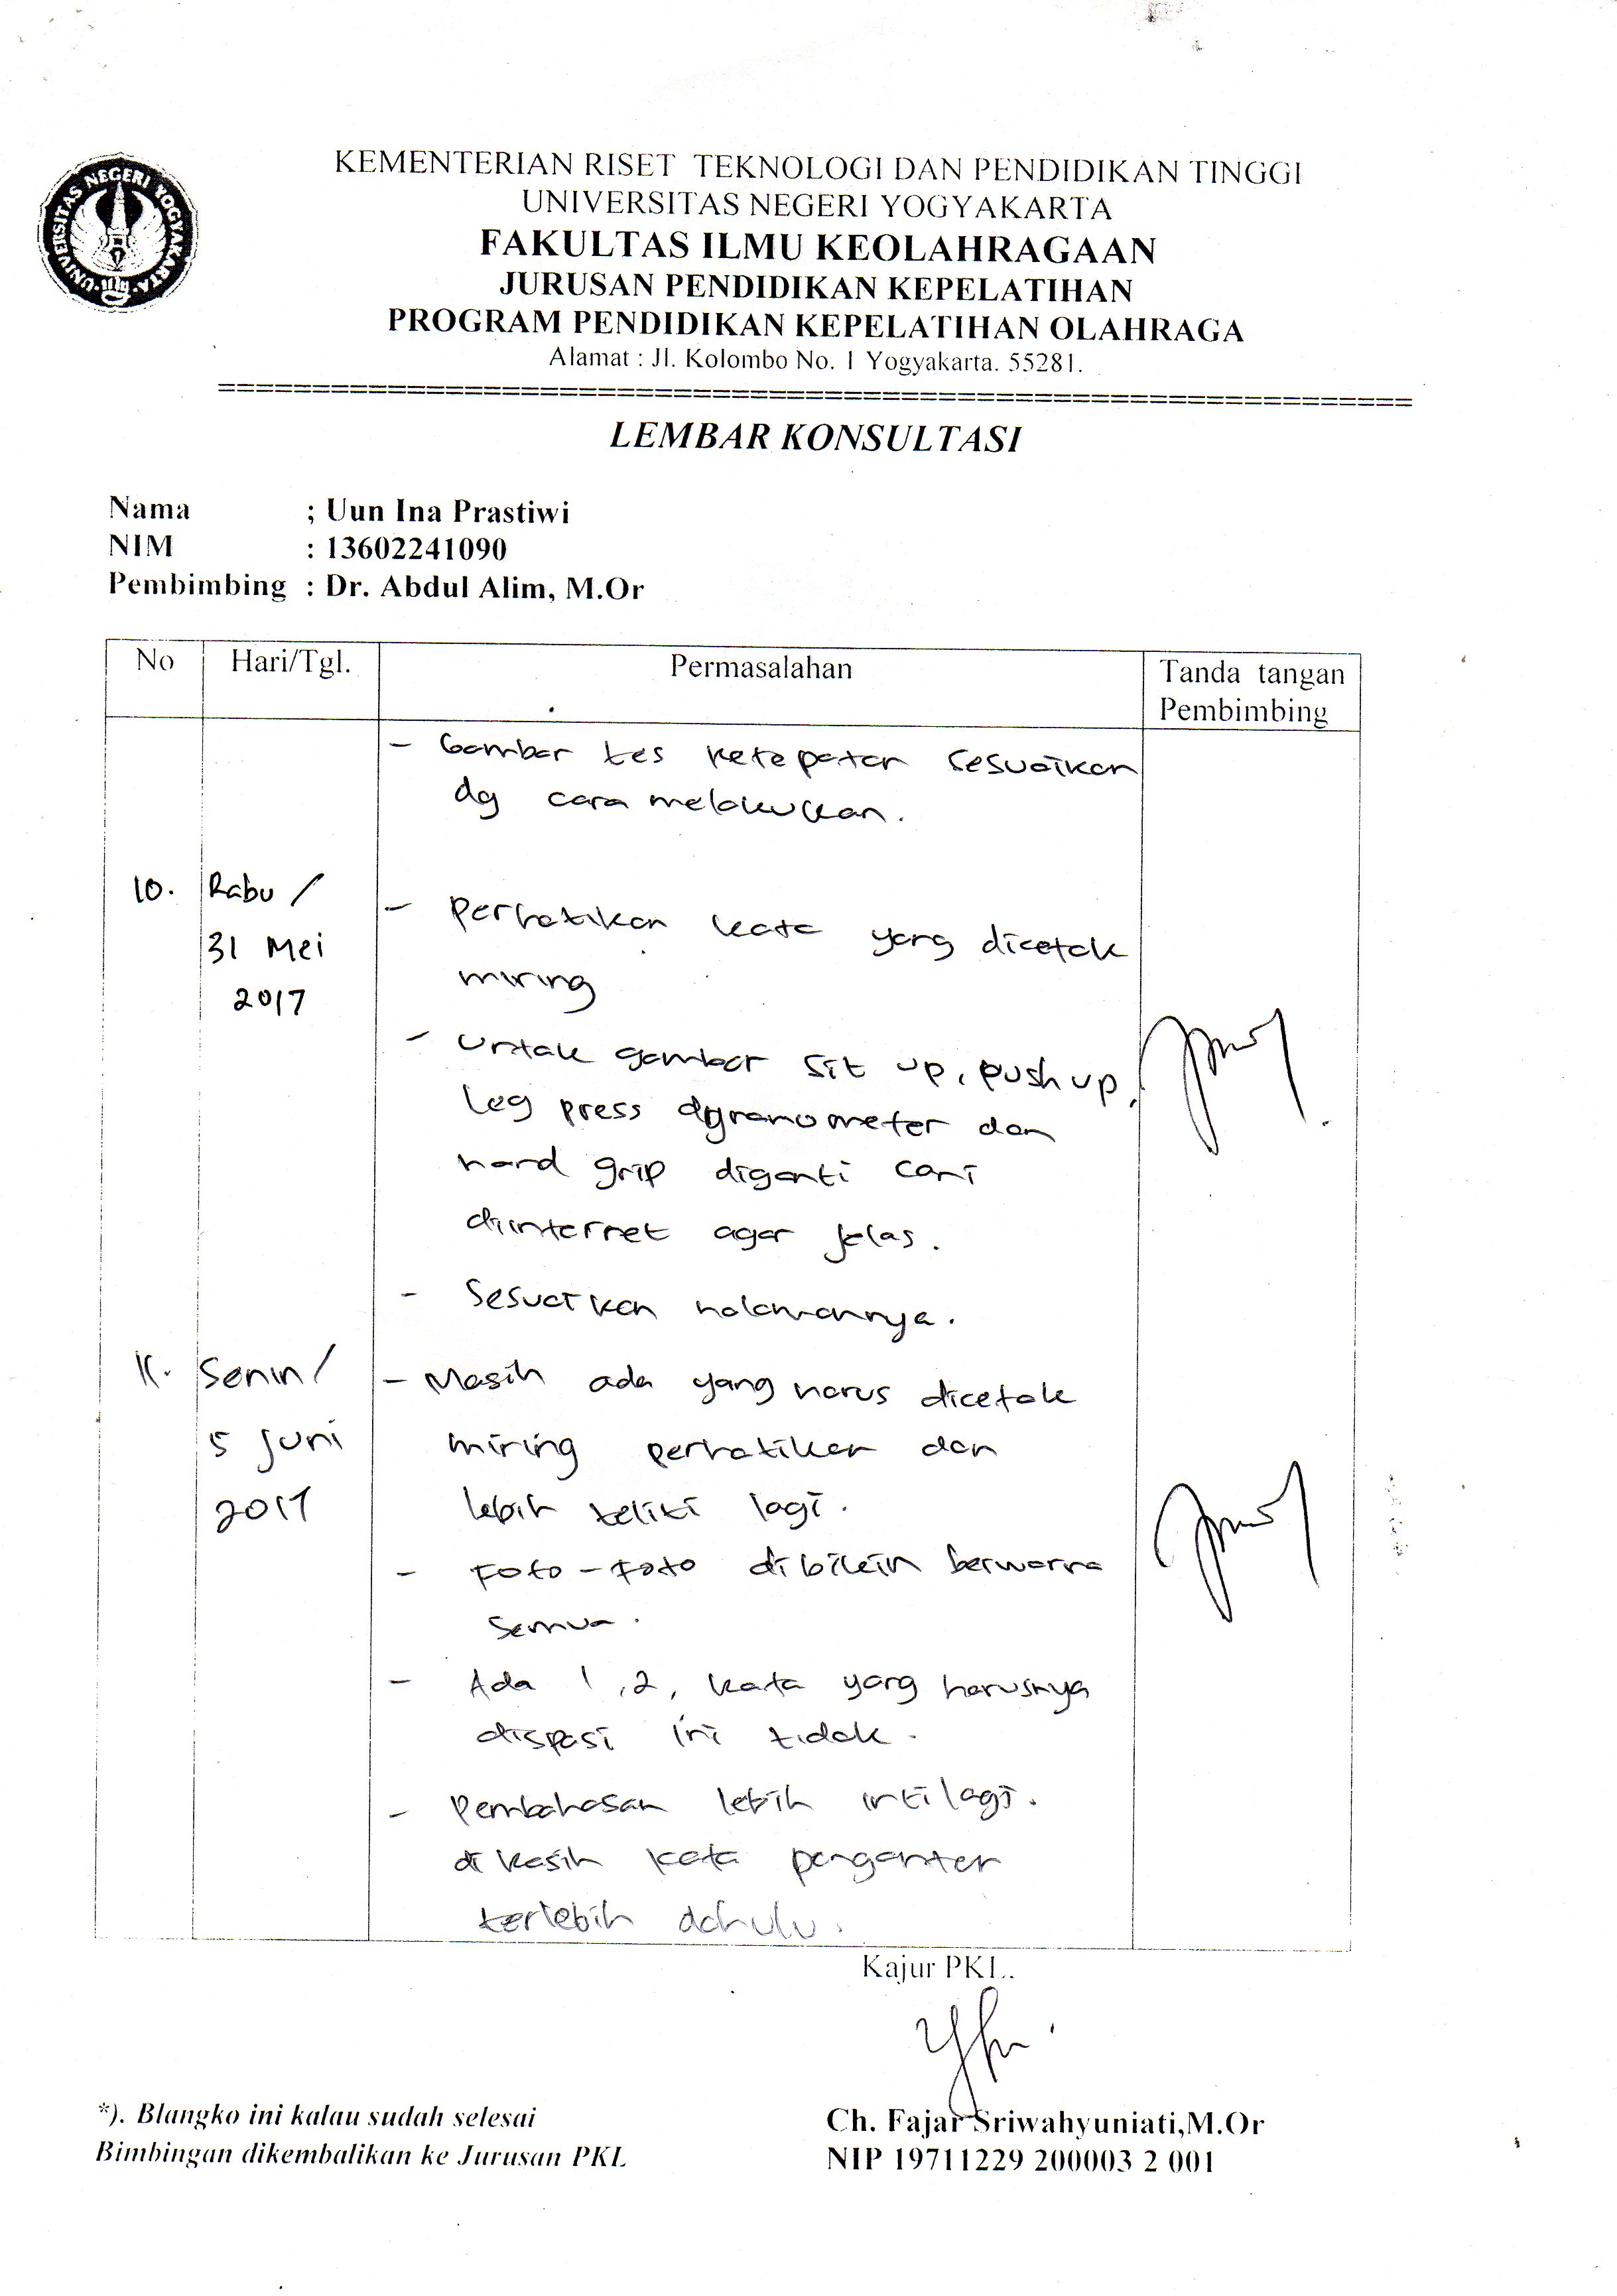 UNIVERSITAS NEGERI YOGYAKARTA
KEMENTERIAN RISET TEKNOLOGI DAN PENDIDIKAN TINGGI
UNIVERSITAS NEGERI YOGYAKARTA
FAKULTAS ILMU KEOLAHRAGAAN
JURUSAN PENDIDIKAN KEPELATIHAN
PROGRAM PENDIDIKAN KEPELATIHAN OLAHRAGA
Alamat : Jl. Kolombo No. 1 Yogyakarta. 55281.
LEMBAR KONSULTASI
Nama ; Uun Ina Prastiwi
NIM : 13602241090
Pembimbing : Dr. Abdul Alim, M.Or
No Hari/Tgl. Permasalahan Tanda tangan
Pembimbing
- Gambar tes ketepatan sesuaikan
dg cara melakukan.
10. Rabu / - Perhatikan kata yang dicetak
31 Mei miring
2017
- Untuk gambar sit up, push up,
leg press dynamometer dan
hand grip diganti cari
diinternet agar jelas.
- Sesuaikan halamannya.
11. Senin / - Masih ada yang harus dicetak
5 Juni miring perhatikan dan
2017 lebih teliti lagi.
- Foto-Foto dibikin berwarna
semua.
- Ada 1,2, kata yang harusnya
dispasi ini tidak.
- Pembahasan lebih inti lagi.
dikasih kata pengantar
terlebih dahulu.
Kajur PKL.
*). Blangko ini kalau sudah selesai
Bimbingan dikembalikan ke Jurusan PKL
Ch. Fajar Sriwahyuniati,M.Or
NIP 19711229 200003 2 001